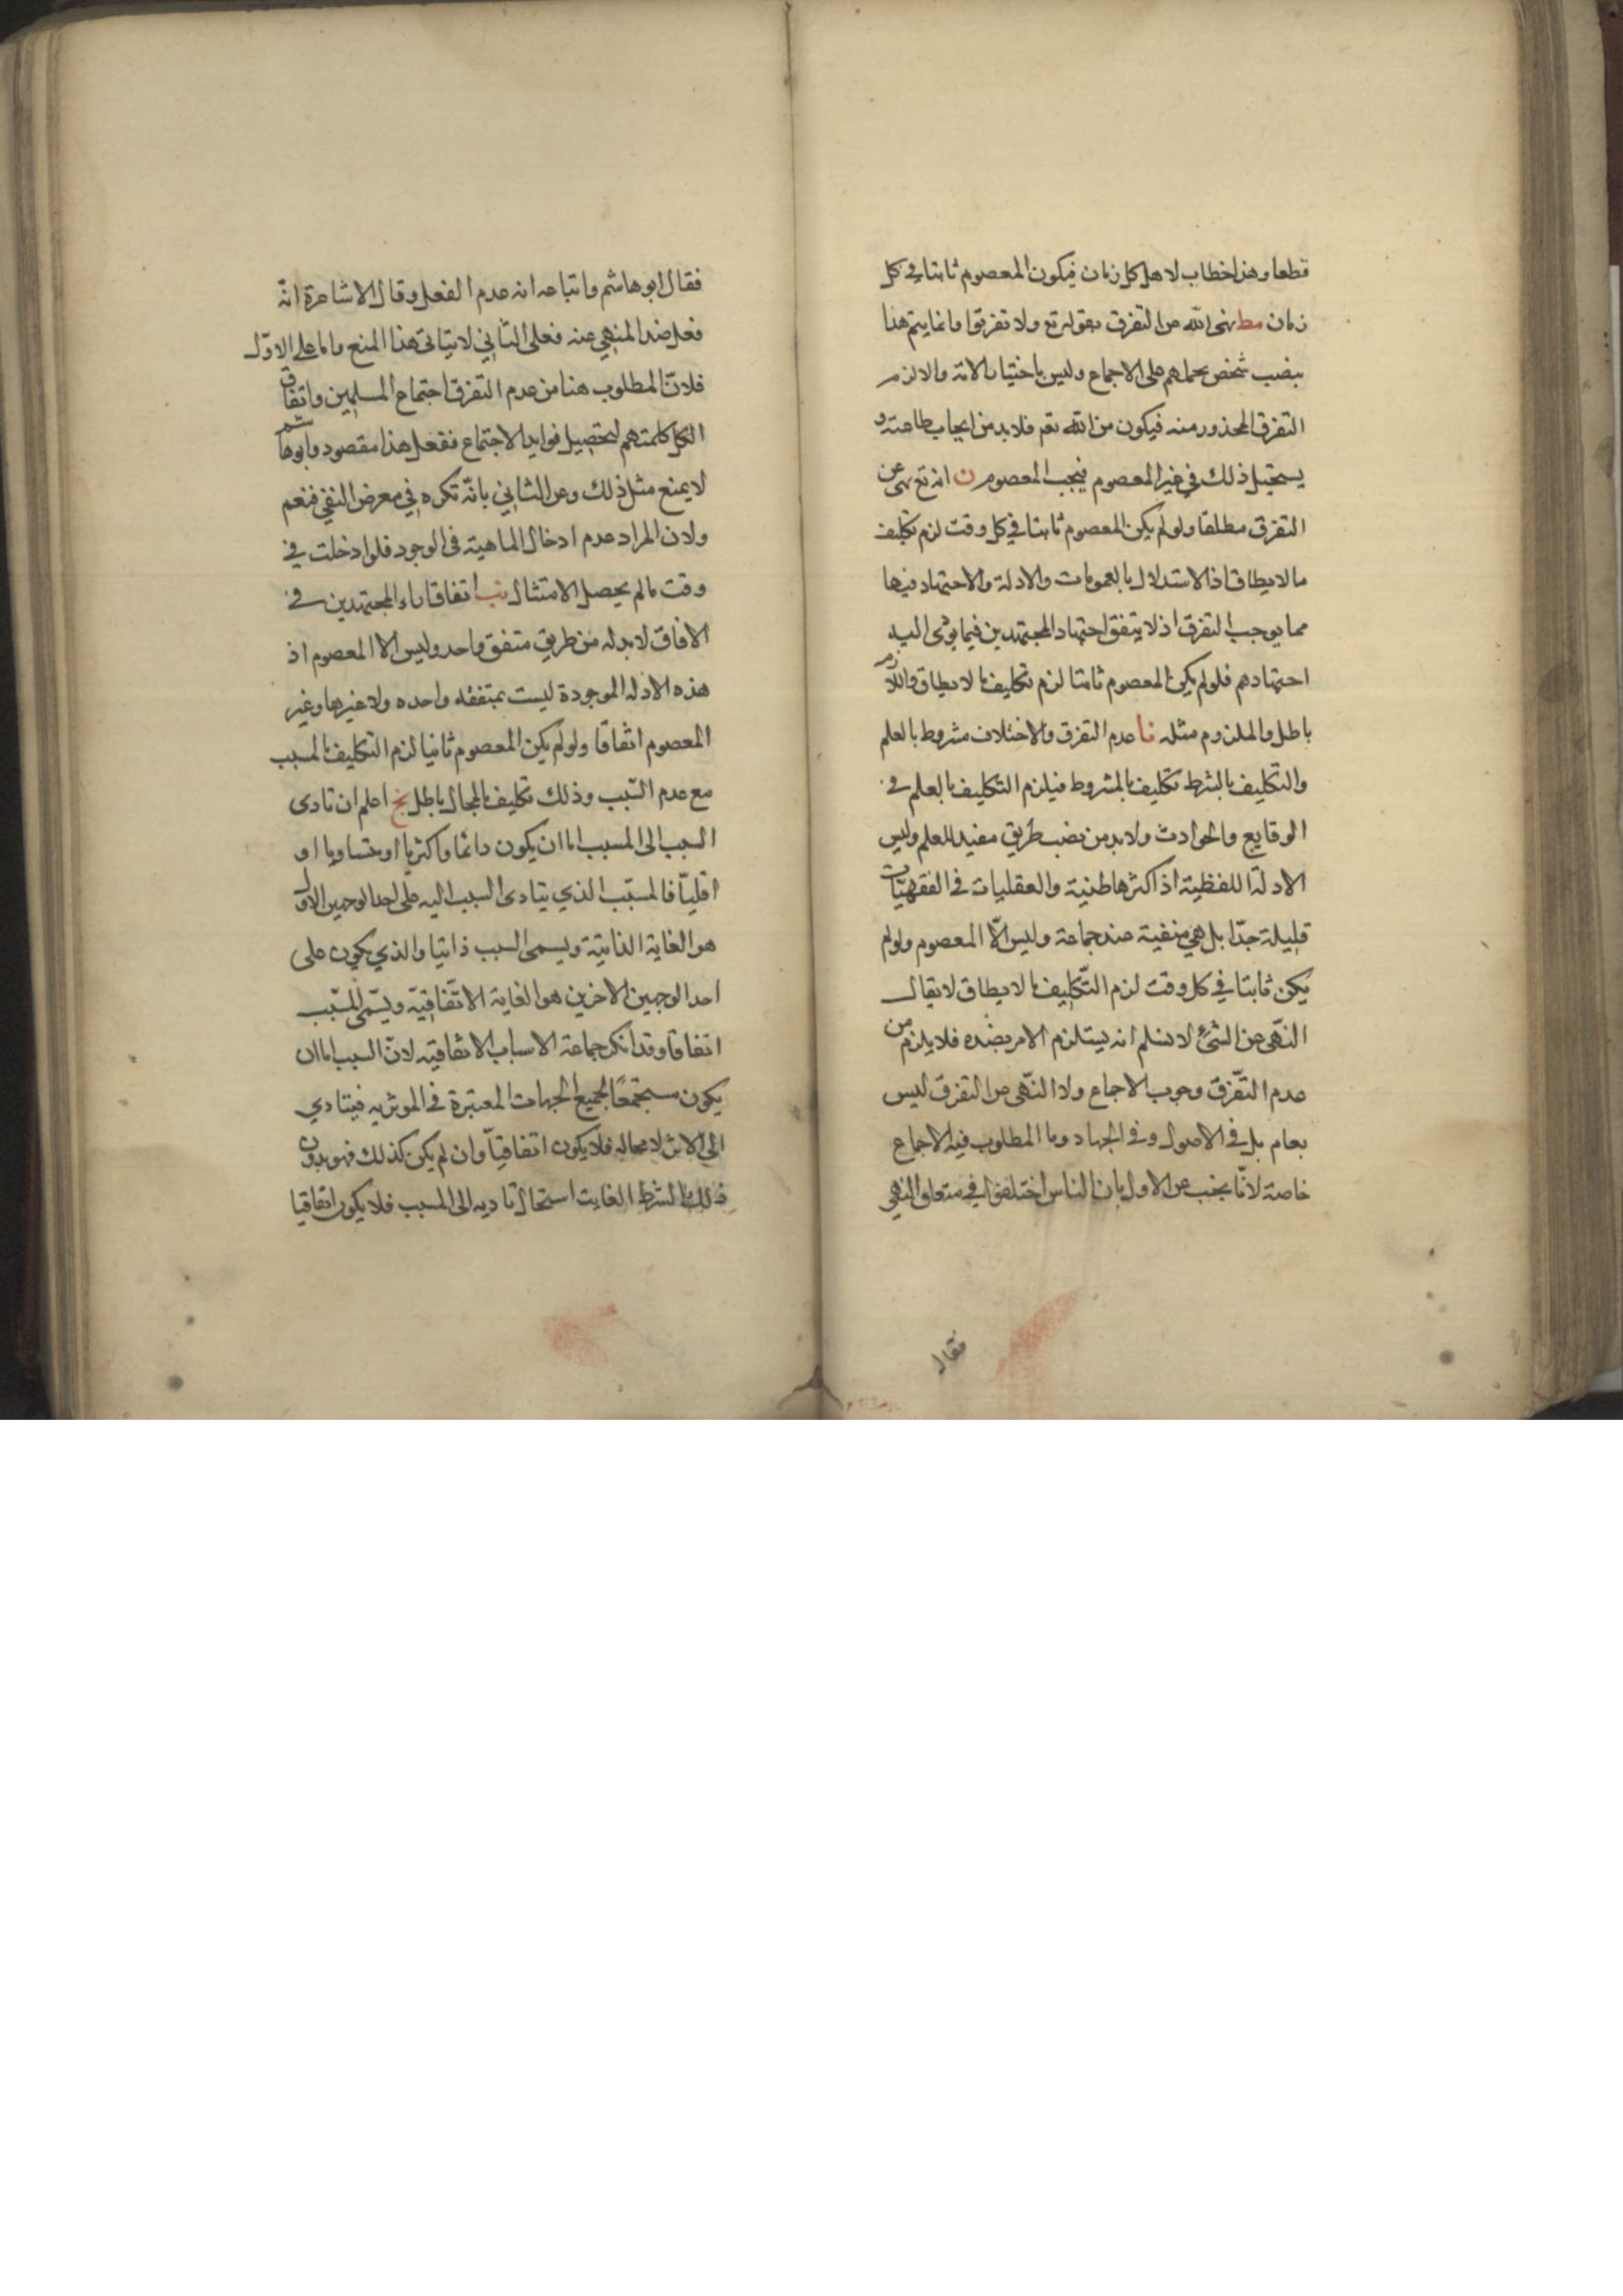 قطعا وهذا خطاب لاهل كل زمان فيكون المعصوم ثابتا في كل
زمان مط نهى الله عن التفرق بقوله تع ولا تفرقوا وانما يتم هذا
بنصب شخص يحملهم على الاجماع وليس باختيار الامة والا لزم
التفرق المحذور منه فيكون من الله تعم فلا بد من ايجاب طاعته و
يستحيل ذلك في غير المعصوم فيجب المعصوم ن انه تع نهى عن
التفرق مطلقا ولو لم يكن المعصوم ثابتا في كل وقت لزم تكليف
ما لا يطاق اذ الاستدلال بالعمومات والادلة والاجتهاد فيها
مما يوجب التفرق اذ لا يتفق اجتهاد المجتهدين فيما يؤدي اليه
اجتهادهم فلو لم يكن المعصوم ثابتا لزم تكليف ما لا يطاق واللازم
باطل والملزوم مثله نا عدم التفرق والاختلاف مشروط بالعلم
والتكليف بالشرط تكليف بالمشروط فيلزم التكليف بالعلم في
الوقايع والحوادث ولا بد من نصب طريق مفيد للعلم وليس
الادلة اللفظية اذ اكثرها ظنية والعقليات في الفقهيات
قليلة جدّا بل هي منفية عند جماعة وليس الّا المعصوم ولو لم
يكن ثابتا في كل وقت لزم التّكليف ما لا يطاق لا يقال
النّهى عن الشئ لا نسلم انه يستلزم الامر بضده فلا يلزم من
عدم التّفرّق وجوب الاجماع ولا النّهى عن التفرق ليس
بعام بل في الاصول وفي الجهاد وما المطلوب فيه الاجماع
خاصة لانّا نجيب عن الاول بان الناس اختلفوا في متعلق النهي
فقال
فقال ابو هاشم واتباعه انه عدم الفعل وقال الاشاعرة انّه
فعل ضد المنهي عنه فعلى الثاني لا يتاتى هذا المنع واما على الاوّل
فلانّ المطلوب هنا من عدم التفرق اجتماع المسلمين واتفاق
الكل كلمتهم لتحصيل فوايد الاجتماع ففعل هذا مقصود وابو هاشم
لا يمنع مثل ذلك وعن الثاني بانّه نكره في معرض النفي فتعم
ولان المراد عدم ادخال الماهية في الوجود فلو ادخلت في
وقت ما لم يحصل الامتثال نب اتفاق اراء المجتهدين في
الافاق لا بد له من طريق متفق واحد وليس الا المعصوم اذ
هذه الادله الموجودة ليست بمتفقه واحده ولا غيرها وغير
المعصوم اتفاقا ولو لم يكن المعصوم ثابتا لزم التكليف بالمسبب
مع عدم السّبب وذلك تكليف بالمحال باطل نج اعلم ان تادى
السبب الى المسبب اما ان يكون دائما واكثريا او متساويا او
اقليّا فالمسبّب الذي يتادى السبب اليه على احد الوجهين الاول
هو الغاية الذاتيّة ويسمى السبب ذاتيا والذي يكون على
احد الوجهين الاخرين هو الغاية الاتّفاقيّة ويسمّى المسبّب
اتفاقا وقد انكر جماعة الاسباب الاتفاقيه لانّ السبب اما ان
يكون مستجمعًا لجميع الجهات المعتبرة في المؤثريه فيتادي
الى الاثر لا محاله فلا يكون اتفاقيّا وان لم يكن كذلك فهو بدون
ذلك الشرط الغايت استحال تاديه الى المسبب فلا يكون اتفاقيا